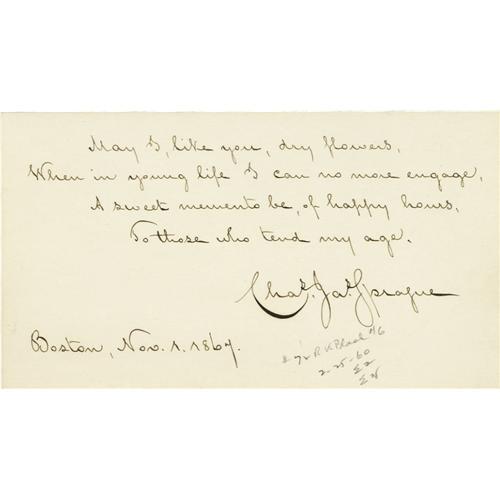 May I, like you, dry flowers,
When in young life I can no more engage,
A sweet memento be, of happy hours,
To those who tend my age.
Chas. Jas. Sprague
Boston, Nov. 1. 1867.
2-25-60